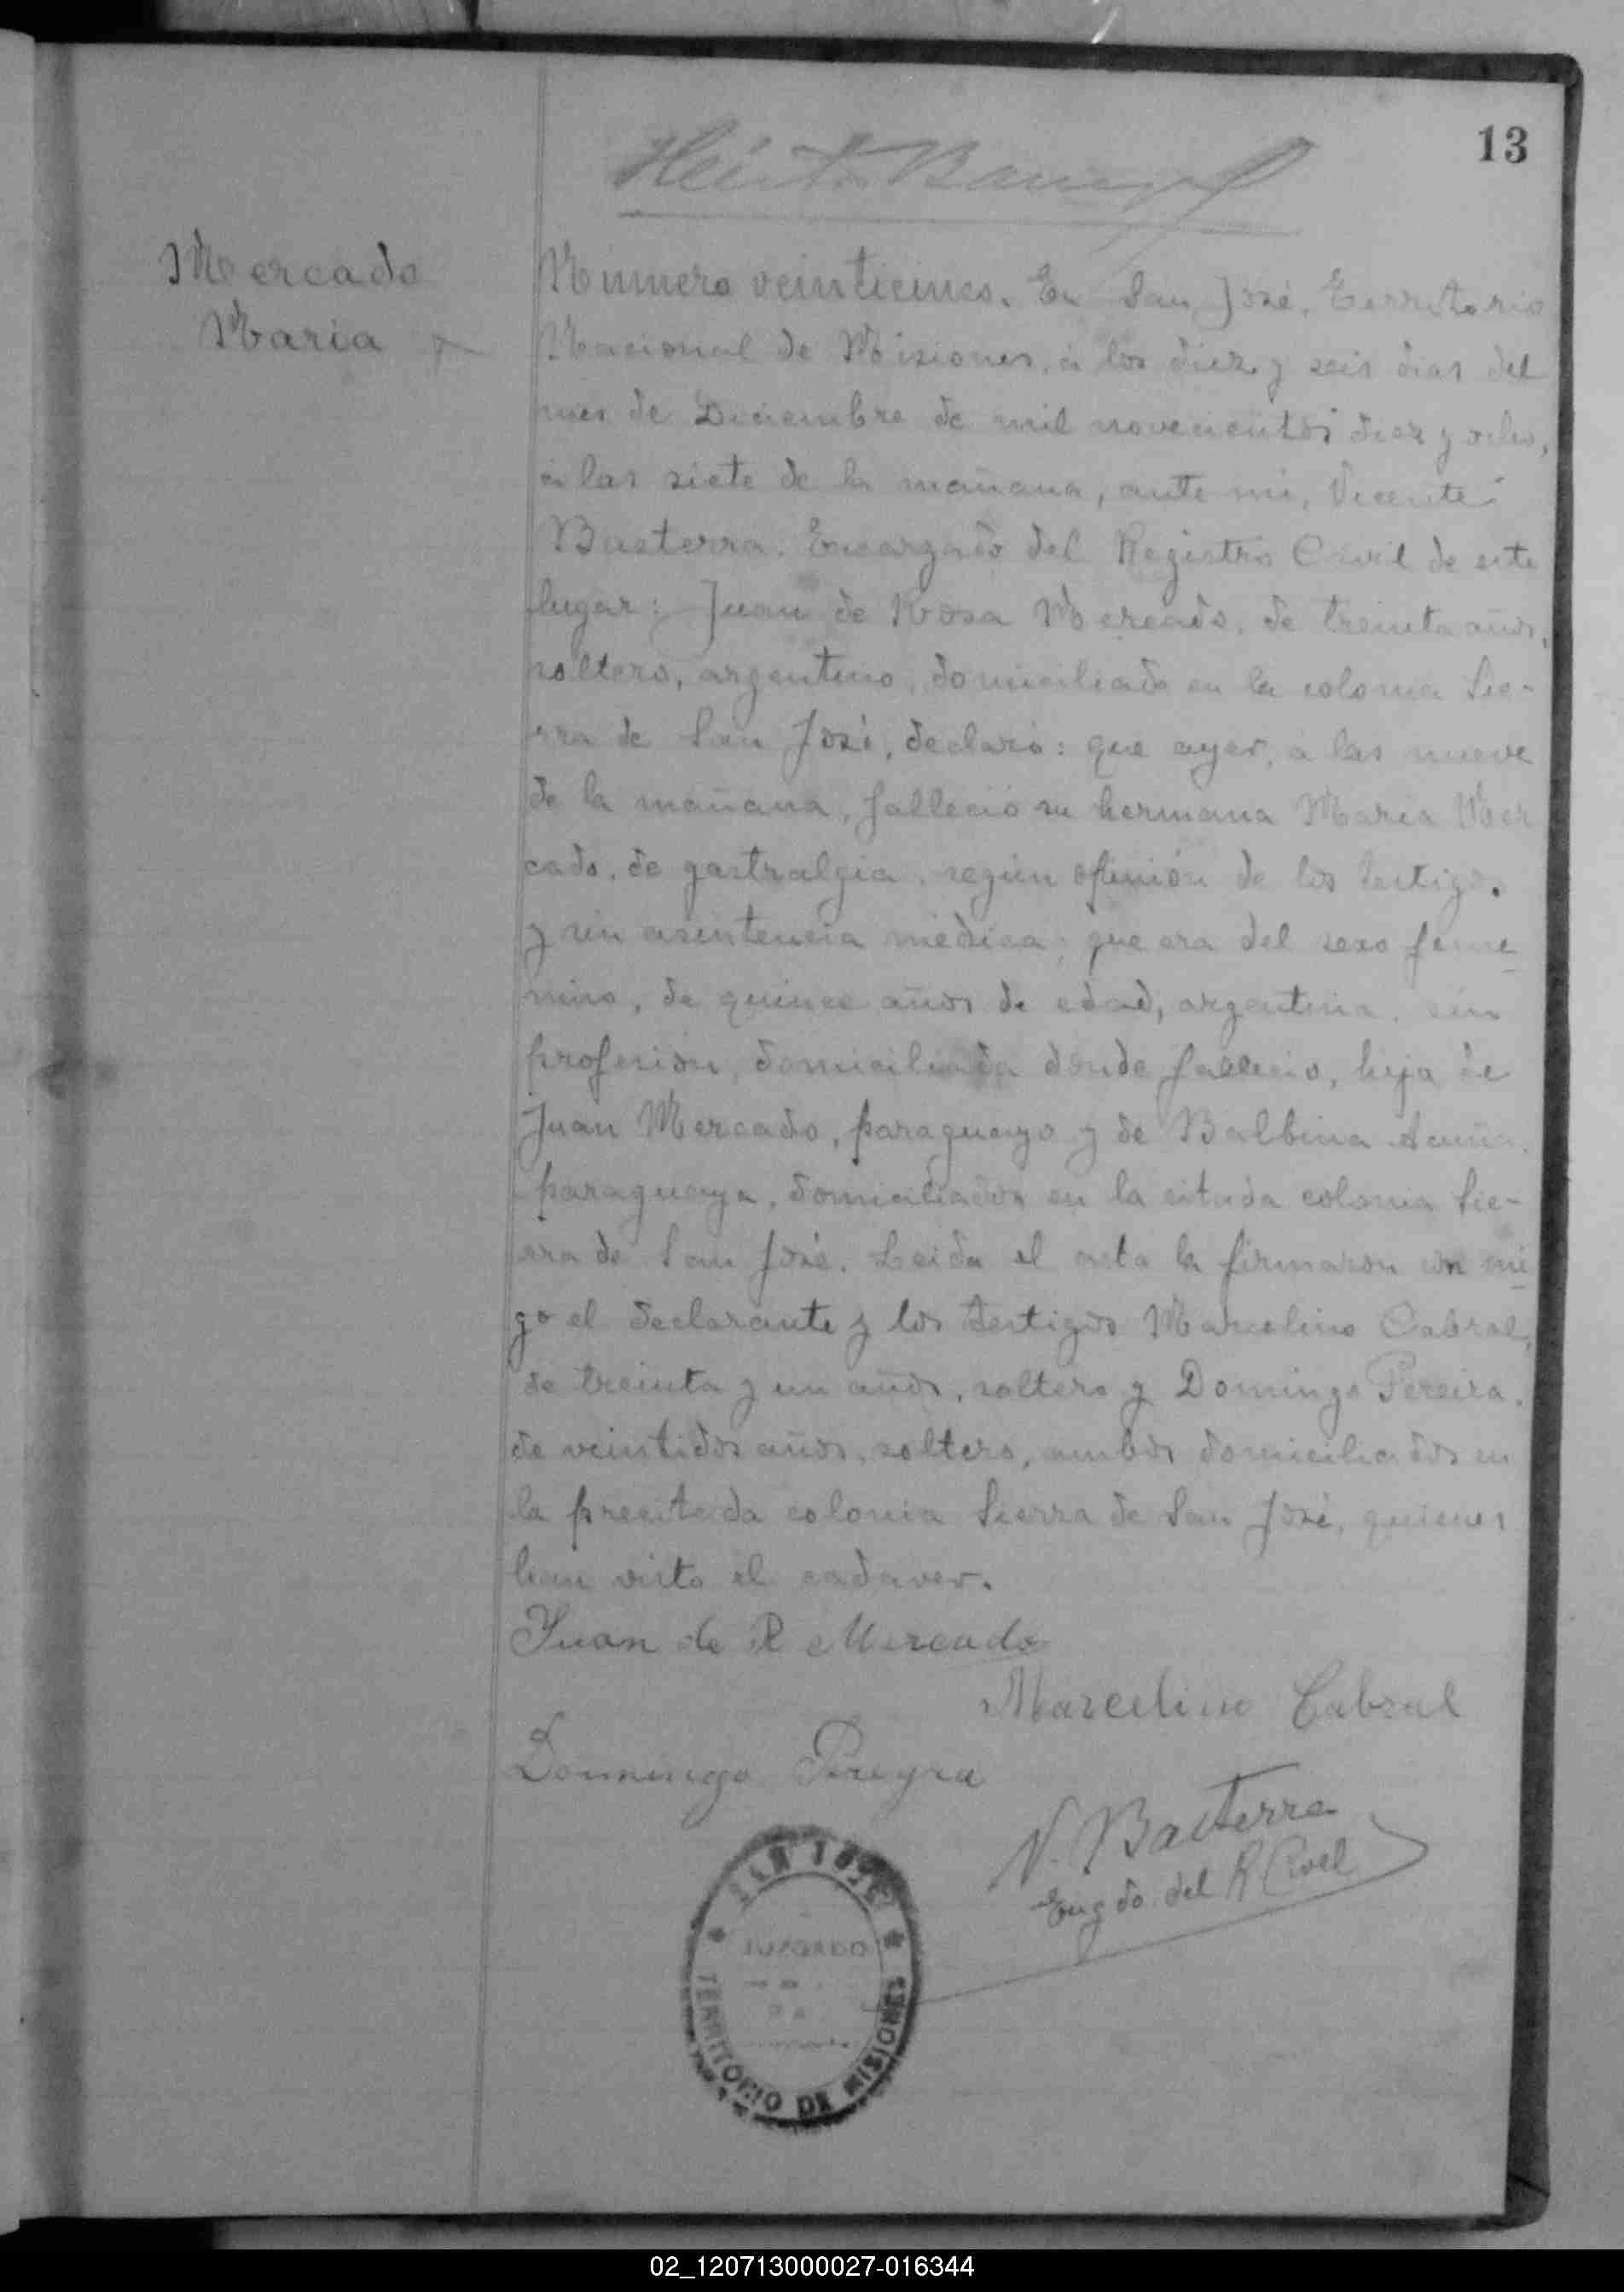 13
Mercado
Maria
Número veinticinco. En San José, Territorio
Nacional de Misiones, á los diez y seis dias del
mes de Diciembre de mil novecientos diez y ocho,
á las siete de la mañana, ante mí, Vicente
Basterra. Encargado del Registro Civil de este
lugar: Juan de Rosa Mercado, de treinta años,
soltero, argentino, domiciliado en la colonia Sie-
rra de San José, declaró: que ayer, á las nueve
de la mañana, falleció su hermana Maria Mer
cado, de gastralgia, según opinión de los testigos
y sin asistencia médica; que era del sexo feme
nino, de quince años de edad, argentina, sin
profesión, domiciliada donde falleció, hija de
Juan Mercado, paraguayo y de Balbina Acuña,
paraguaya, domiciliados en la citada colonia Sie-
rra de San José. Leida el acta la firmaron con mi
go el declarante y los testigos Marcelino Cabral,
de treinta y un años, soltero y Domingo Pereira,
de veintidos años, soltero, ambos domiciliados en
la precitada colonia Sierra de San José, quienes
han visto el cadaver.
Juan de R Mercado
Marcelino Cabral
Domingo Pereyra
V. Basterra
Engdo. del R. Civil
SAN JOSE
JUZGADO
TERRITORIO DE MISIONES
02_120713000027-016344